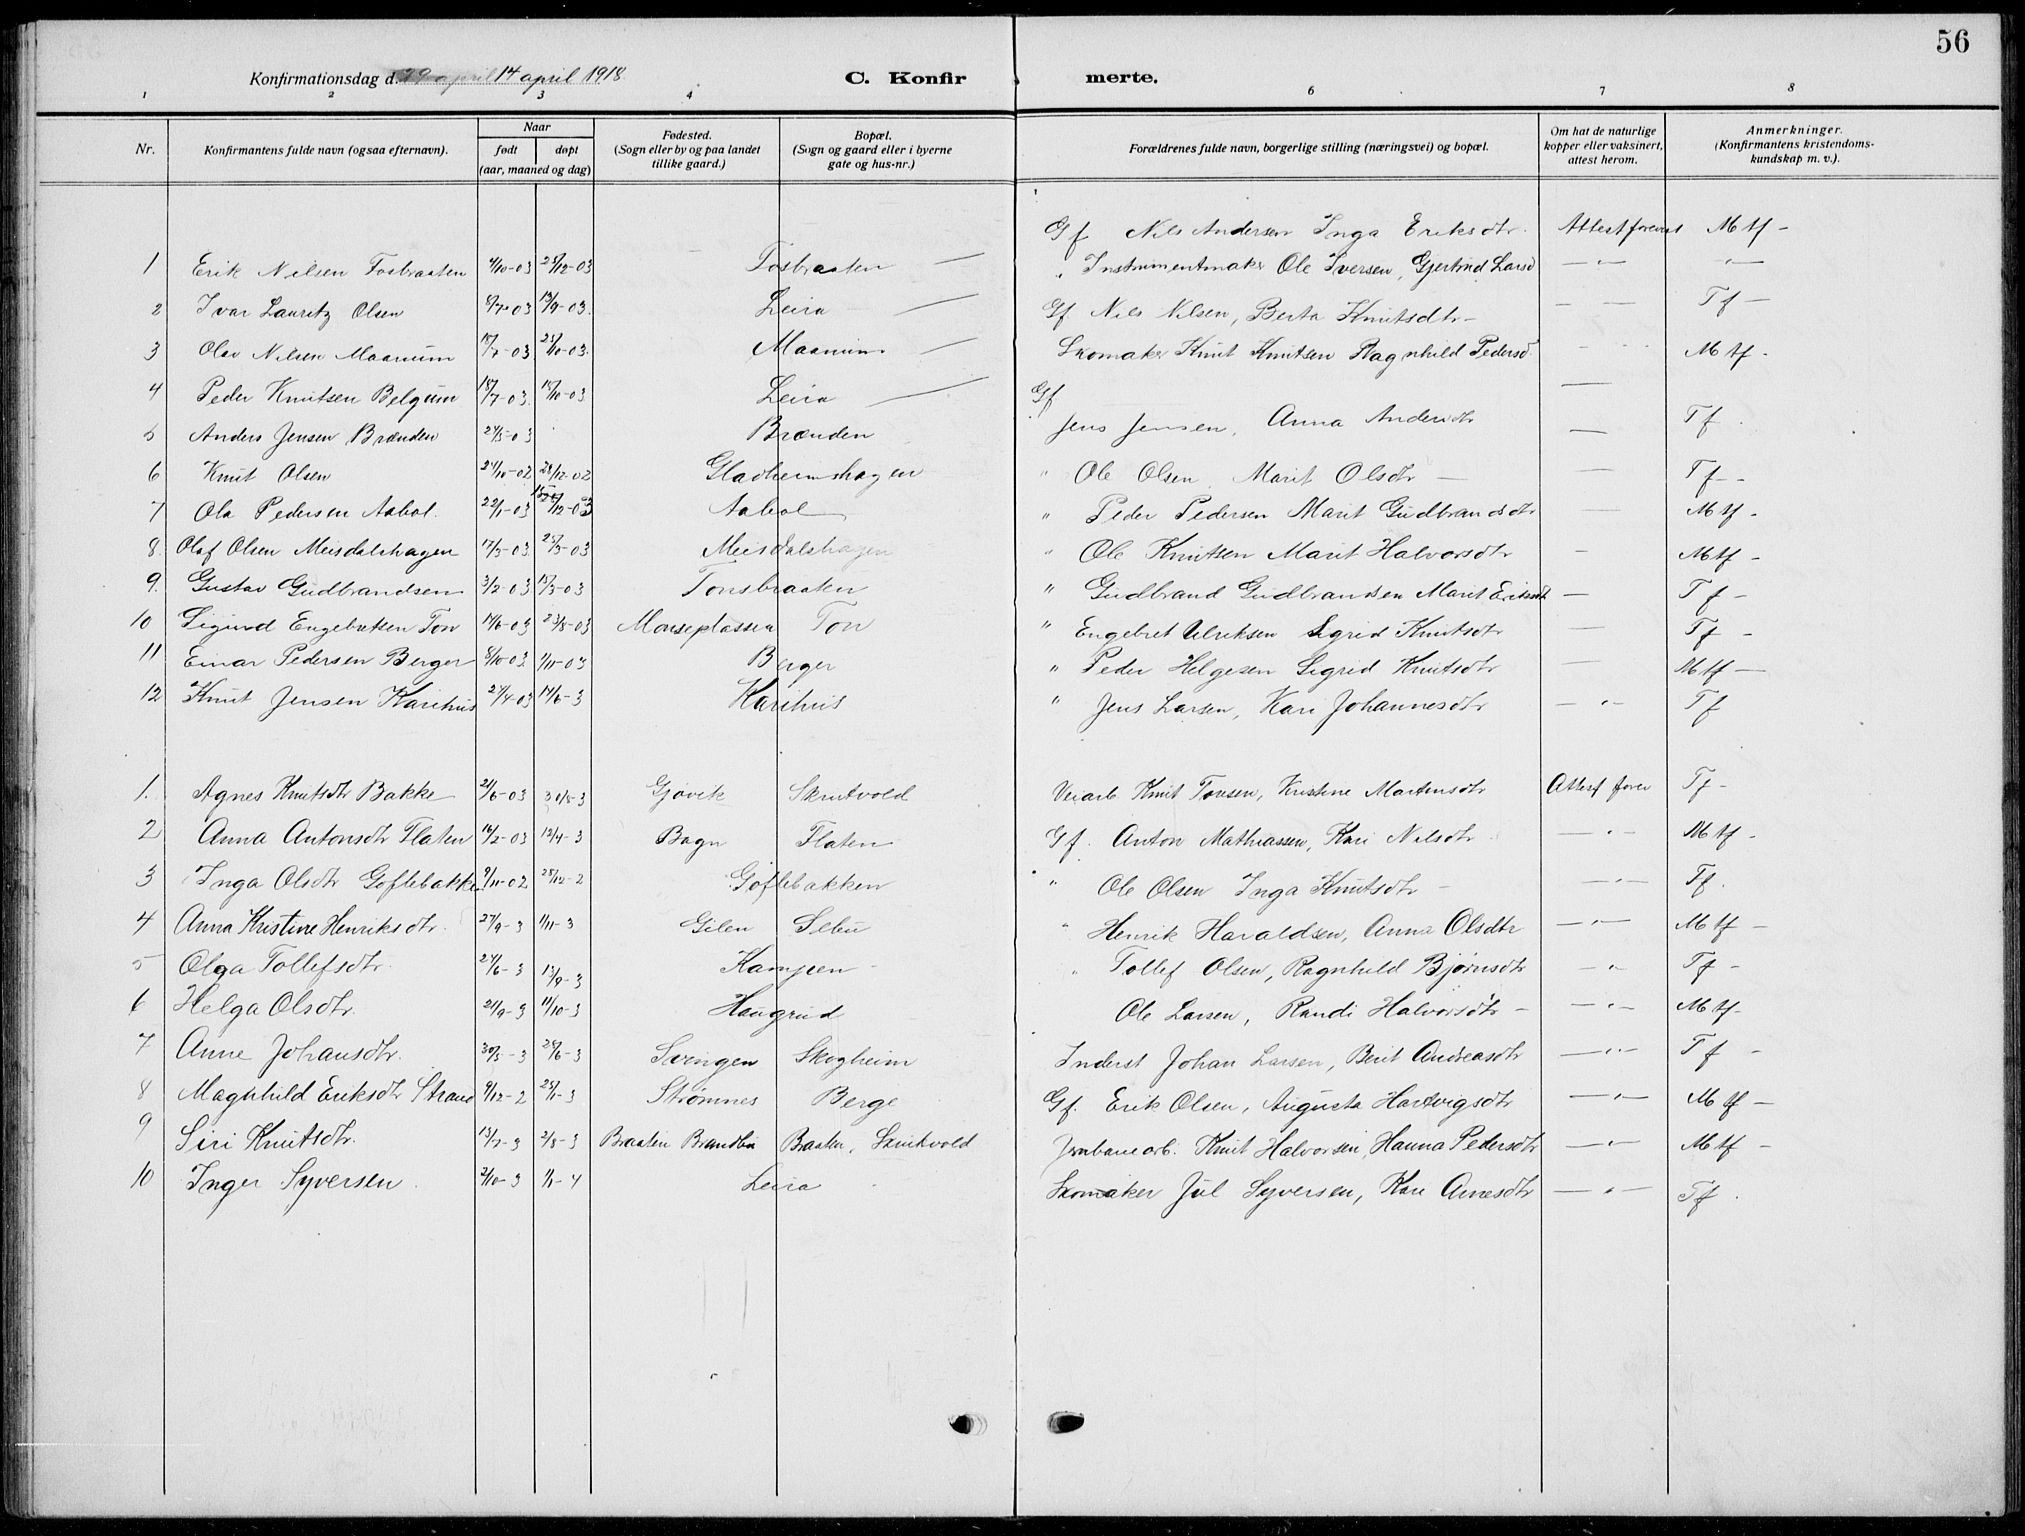 56
Konfirmationsdag d. 14 april 1918
C. Konfir merte.
1 2 3 4 6 7 8
Nr.
Konfirmantens fulde navn (ogsaa efternavn).
Naar
født døpt
(aar, maaned og dag)
Fødested.
(Sogn eller by og paa landet
tillike gaard.)
Bopæl.
(Sogn og gaard eller i byerne
gate og hus-nr.)
Forældrenes fulde navn, borgerlige stilling (næringsvei) og bopæl.
Om hat de naturlige
kopper eller vaksinert,
attest herom.
Anmerkninger.
(Konfirmantens kristendoms-
kundskap m. v.).
1 Erik Nilsen Fosbraaten 4/10-03 25/12-03 Fosbraaten — Gf Nils Andersen Inga Eriksdtr. Attest forevist Mtf -
2 Ivar Lauritz Olsen 13/9-03. Leira — " Instrumentmaker Ole Iversen, Gjertrud Larsd — " — — " —
3 Olav Nilsen Maanum 03 25/10-03. Maanum — Gf Nils Nilsen, Berta Knutsdtr - — — Tf —
4 Peder Knutsen Belgum 18/7-03. 18/10-03 Leira — Skomaker Knut Knutsen Ragnhild Pedersd Mtf -
5 Anders Jensen Brænden 03 Brænden Gf Jens Jensen, Anna Andersdtr — Tf.
6 Knut Olsen 02 26/12-02 Gladheimshagen " Ole Olsen, Marit Olsdtr — — Tf -
7 Ola Pedersen Aabol. 22/1-03 Aabol " Peder Pedersen Marit Gudbrandsdtr — Mtf -
8. Olaf Olsen Meisdalshagen 17/3-03. 03 Meisdalshagen " Ole Knutsen Marit Halvorsdtr — Mtf -
9. Gustav Gudbrandsen 3/2-03 15/3-03 Tonsbraaten " Gudbrand Gudbrandsen Marit Eriksdtr — Tf -
10 Sigurd Engebretsen Ton 14/6-03 23/8-03 Ton " Engebret Ulriksen Sigrid Knutsdtr — Tf -
11 Einar Pedersen Berger 8/10-03 1/11-03 Berger " Peder Helgesen Sigrid Knutsdtr — Mtf —
12 Knut Jensen Karihus 27/4-03 14/6-3 Karihus " Jens Larsen, Kari Johannesdtr — " — Tf
1. Agnes Knutsdtr Bakke 21/6-03 30/8-3 Gjøvik Skrutvold Veiarb Knut Tonsen, Kristine Martensdtr Attest forev Tf -
2 Anna Antonsdtr Flaten 14/2-03 12/4-3 Bagn Flaten Gf. Anton Mathiassen, Kari Nilsdtr — " — Mtf -
3 Inga Olsdtr Goflebakken 9/11-02 28/12-2 Goflebakken " Ole Olsen Inga Knutsdtr - — " — Tf.
4 Anna Kristine Henriksdtr. 27/9-3 1/11-3 Gilen Selbu " Henrik Haraldsen, Anna Olsdtr — " — Mtf —
5 Olga Tollefsdtr. 24/6-3 13/9-3 Kampen - " Tollef Olsen, Ragnhild Bjørnsdtr — " — Tf -
6 Helga Olsdtr. 21/9-3 11/10-3 Haugrud Ole Larsen, Randi Halvorsdtr - — " — Mtf-
7 Anne Johansdtr. 30/5-3 28/6-3 Svengen Skogheim Inderst Johan Larsen, Berit Andreasdtr — " — Tf -
8 Magnhild Eriksdtr Strand 9/12-2 25/1-3 Strømnes Berge Gf. Erik Olsen, Augusta Hartvigsdtr — " — Mtf -
9 Siri Knutsdtr. 13/7-3 2/8-3 Braaten Brandbu Braaten, Skrutvold Jernbanearb. Knut Halvorsen, Hanna Pedersdtr — " — Mtf -
10 Inger Syversen. 2/10-3 1/1-4 Leira Skomaker Jul Syversen, Kari Arnesdtr — " — Tf.